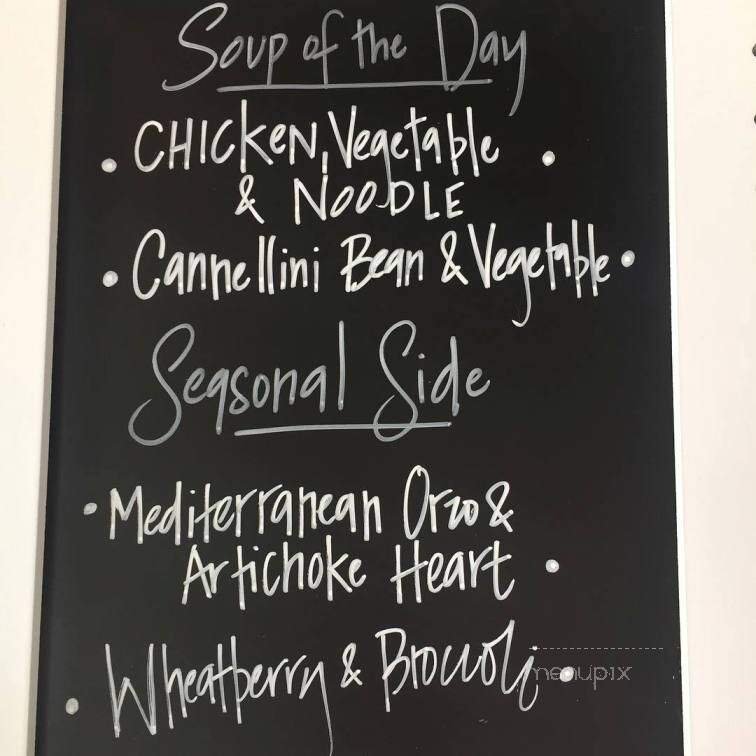 Soup of the Day
• CHICKEN, Vegetable •
& NOODLE
• Cannellini Bean & Vegetable •
Seasonal Side
• Mediterranean Orzo &
Artichoke Heart •
• Wheatberry & Broccoli •
menupix